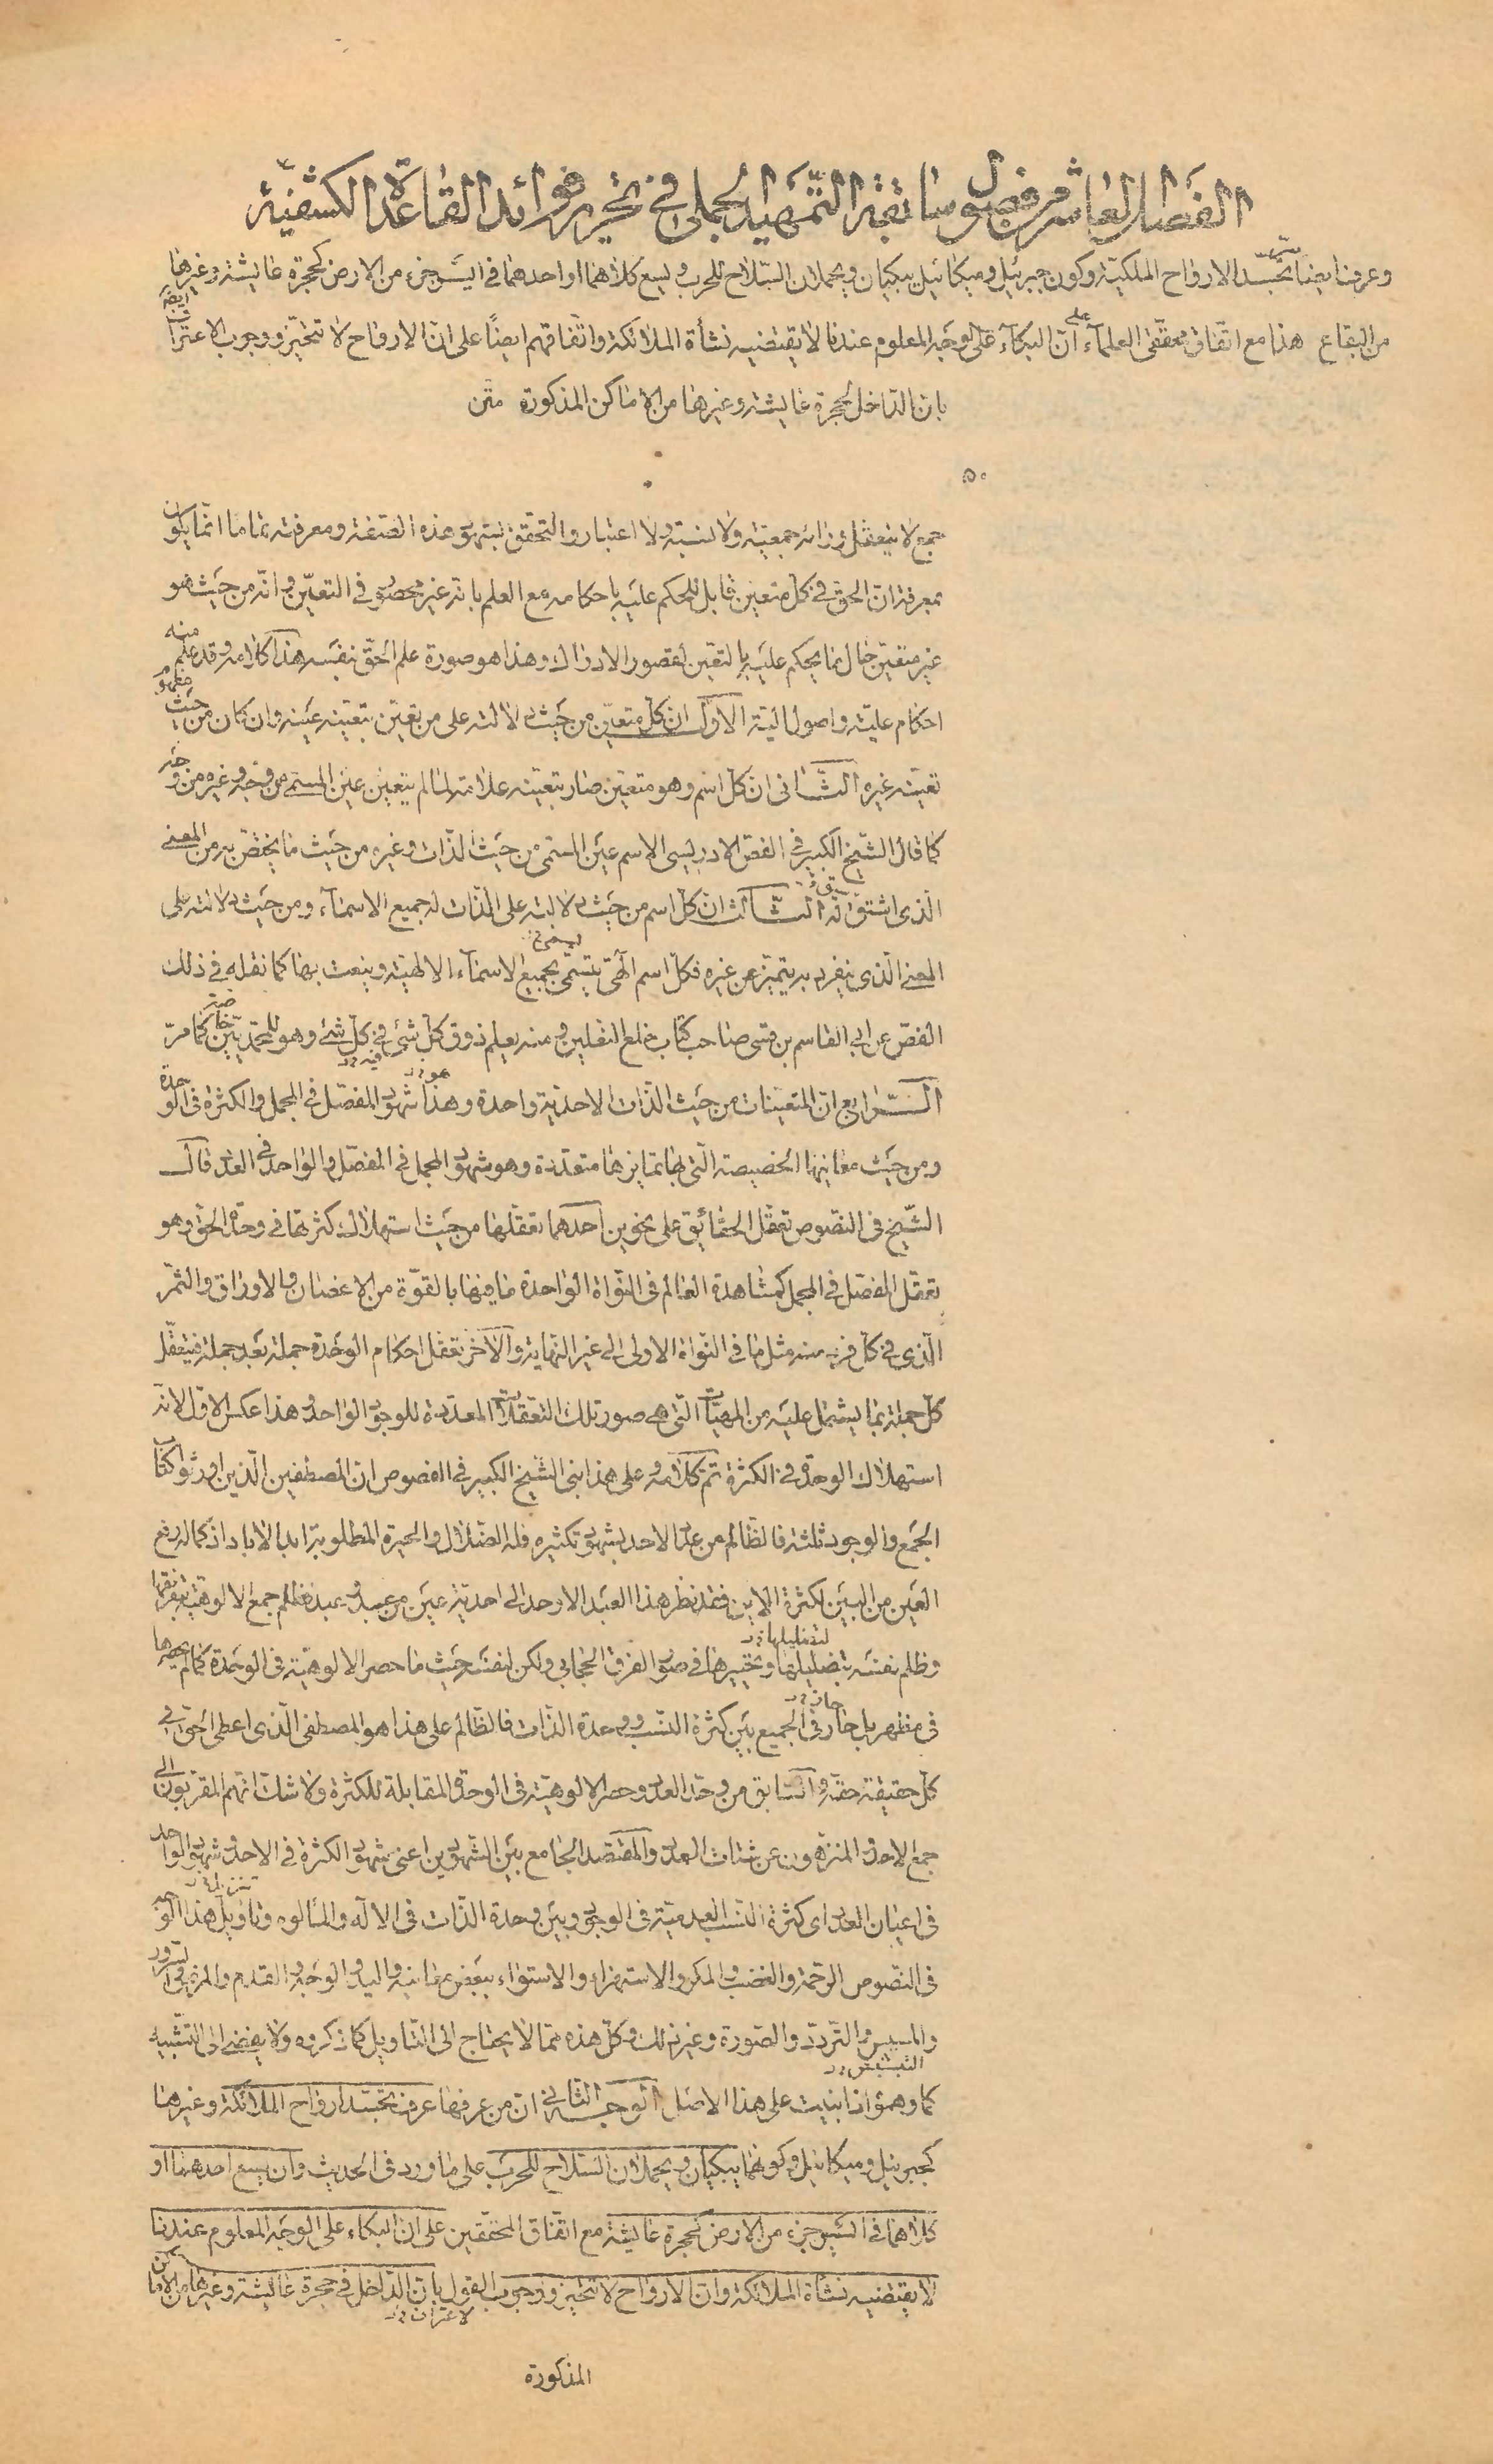 الفصل العاشر من فصول سابقة التمهيد الجملي في تحرير فوائد القاعدة الكشفية
وعرف ايضاً تجسد الارواح الملكية وكون جبرئيل وميكائيل يبكيان ويحملان السلاح للحرب ويسع كلاهما او احدهما في ايسر جزء من الارض كحجرة عايشة وغيرها
من البقاع هذا مع اتفاق محققى العلماء على ان البكاء على الوجه المعلوم عندنا لا يقتضيه نشأة الملائكة واتفاقهم ايضاً على ان الارواح لا تتحيز ووجوب الاعتراف
بان الداخل لحجرة عايشة وغيرها من الاماكن المذكورة متن
٥٠
جمع لا يتعقل وراءه جمعية ولا نسبة ولا اعتبار والتحقق بشهود هذه الصفة ومعرفته تماما انما يكون
بمعرفة ان الحق في كل متعين قابل للحكم عليه باحكامه مع العلم بانه غير محصور في التعين وانه من حيث هو
غير متعين حال ما يحكم عليه بالتعين لقصور الادراك وهذا هو صورة علم الحق نفسه هذا كلامه وقد علم منه
احكام علية واصول الية الاول ان كل متعين من حيث دلالته على من تعين بتعينه عينه وان كان من حيث مفهوم
تعينه غيره الثانى ان كل اسم وهو متعين صار تعينه علامة لما لم يتعين عين المسمى من وجه وغيره من وجه
كما قال الشيخ الكبير في الفص الادريسى الاسم عين المسمى من حيث الذات وغيره من حيث ما يختص به من المعنى
الذى اشتق له الثالث ان كل اسم من حيث دلالته على الذات له جميع الاسماء ومن حيث دلالته على
المعنى الذى ينفرد به يتميز عن غيره فكل اسم الهى يتسمى بجميع الاسماء الالهية وينعت بها كما نقله في ذلك
الفص عن ابى القاسم بن قسى صاحب كتاب خلع النعلين ومنه يعلم ذوق كل شئ في كل شئ وهو للمحمديين خاصة كما مر
الرابع ان المتعينات من حيث الذات الاحدية واحدة وهذا شهود المفصل في المجمل والكثرة في الوحدة
ومن حيث معانيها الخصيصة التى بها تمايزها متعددة وهو شهود المجمل في المفصل والواحد في العدد قال
الشيخ في النصوص تعقل الحقائق على نحوين احدهما تعقلها من حيث استهلاك كثرتها في وحدة الحق وهو
تعقل المفصل في المجمل كمشاهدة العالم في النواة الواحدة ما فيها بالقوة من الاغصان والاوراق والثمر
الذى في كل فرد منه مثل ما في النواة الاولى الى غير النهاية والاخر تعقل احكام الوحدة جملة بعد جملة فيتعقل
كل جملة بما يشتمل عليه من المهيات التى هى صور تلك التعقلات المعددة للوجود الواحد وهذا عكس الاول لانه
استهلاك الوحدة في الكثرة تم كلامه وعلى هذا بنى الشيخ الكبير في الفصوص ان المصطفين الذين اورثوا كتاب
الجمع والوجود ثلثة فالظالم من عدد الاحد بشهود تكثيره فله الضلال والحيرة المطلوبة ابد الاباد اذ كماله رفع
العين من البين لكثرة الاين فقد نظر هذا العبد الاوحد الى احدية عين من عبيد وعبد فظلم جمع الالوهية بتفرقتها
وظلم نفسه بتضليلها وتحييرها في صور الفرق الحجابى ولكن لنفسه حيث ما حصر الالوهية في الوحدة كما لم يحصرها
في مظهر بل حار في الجميع بين كثرة النسب ووحدة الذات فالظالم على هذا هو المصطفى الذى اعطى الحق في
كل حقيقة حقه والسابق من وحد العدد وحصر الالوهية في الوحدة المقابلة للكثرة ولا شك انهم المقربون الى
جمع الاحد والمنزهون عن شتات العدد والمقتصد الجامع بين الشهودين اعنى شهود الكثرة في الاحد وشهود الواحد
في اعيان العدد اى كثرة النسب العدمية في الوجود وبين وحدة الذات في الاله والمألوه وتاويل هذا الوجه
في النصوص الرحمة والغضب والمكر والاستهزاء والاستواء ببعض معانيه واليد والوجه والقدم والمرور
والتردد والصورة وغير ذلك وكل هذه مما لا يحتاج الى التاويل كما ذكروه ولا يفضى الى التشبيه
كما وهموا اذا بنيت على هذا الاصل الوجه الثانى ان من عرفها عرف تجسد ارواح الملائكة وغيرها
كجبرئيل وميكائيل وكونهما يبكيان ويحملان السلاح للحرب على ما ورد في الحديث وان يسع احدهما او
كلاهما في ايسر جزء من الارض كحجرة عايشة مع اتفاق المحققين على ان البكاء على الوجه المعلوم عندنا
لا يقتضيه نشأة الملائكة وان الارواح لا تتحيز ووجوب القول بان الداخل في حجرة عايشة وغيرها من الاماكن
المذكورة